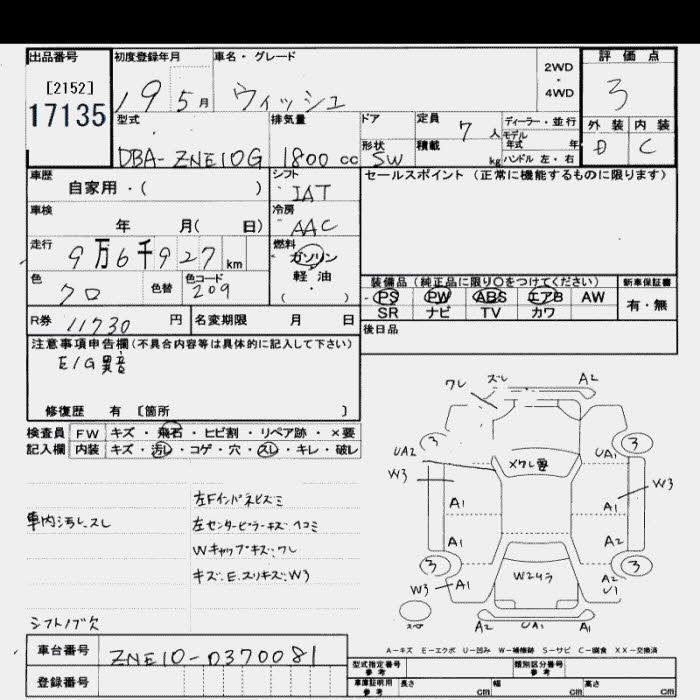 出品番号 初度登録年月 車名・グレード 2WD・4WD 評価点
[2152]
17135
19 5月 ウィッシュ 3
型式 排気量 ドア 定員 7人 ディーラー・並行 外装 内装
モデル年式 年
DBA-ZNE10G 1800cc 形状 SW 積載 kg ハンドル 左・右 D C
車歴 シフト セールスポイント(正常に機能するものに限ります)
自家用・( ) IAT
車検 冷房
年 月( 日) AAC
走行 燃料
9万6千927km ガソリン
軽・油
( ・ )
色 色替 色コード 装備品(純正品に限り○をつけてください) 新車保証書
クロ 209 PS PW ABS エアB AW 有・無
SR ナビ TV カワ
R券 11730円 名変期限 月 日 後日品
注意事項申告欄(不具合内容等は具体的に記入して下さい)
E/G異音
修復歴 有 [箇所 ]
検査員 FW キズ・飛石・ヒビ割・リペア跡・×要
記入欄 内装 キズ・汚レ・コゲ・穴・スレ・キレ・破レ
ワレ ズレ A2
3 3
UA2 UA1
W3 Xワレ要 W3
A1 A1
A1 A2
3 3
W3 A1 W2ムラ A2
U1
A1 UA1 A2
左Fインパネビズミ
車内汚レ、スレ 左センターピラーキズ、ヘコミ
Wキャップキズ、ワレ
キズ、E、スリキズ、W3
シフトノブ欠
A-キズ E-エクボ U-凹み W-補修跡 S-サビ C-腐食 XX-交換済
車台番号 ZNE10-0370081
型式指定番号 参考 類別区分番号 参考
登録番号 車庫証明用 参考 長さ cm 幅 cm 高さ cm